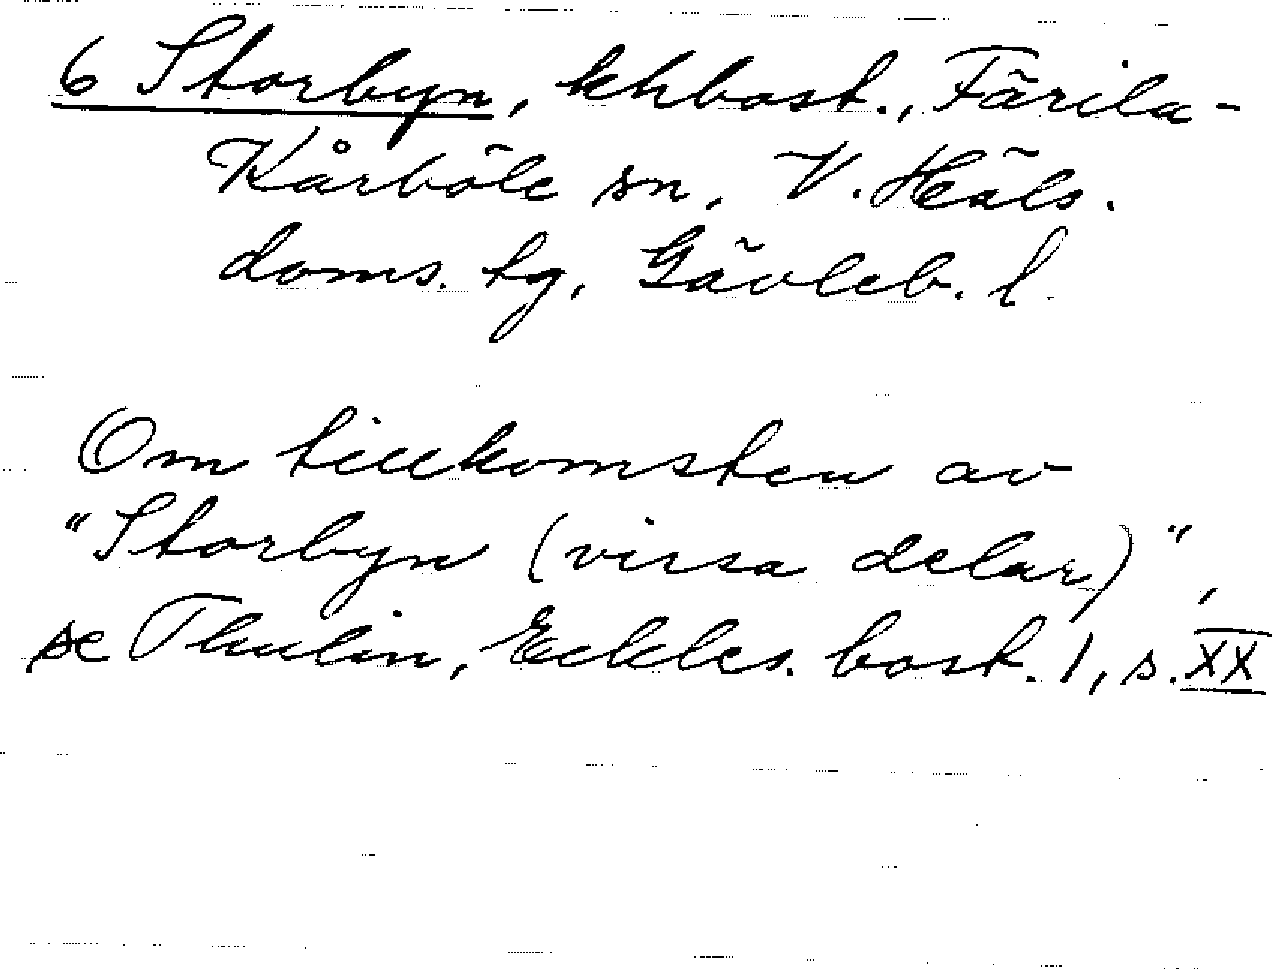 6 Storbyn, khbost., Färila-
Kårböle sn, V. Häls.
doms. tg, Gävleb. l.
Om tillkomsten av
"Storbyn (vissa delar)",
se Thulin, Eckles. bost. 1, s. XX